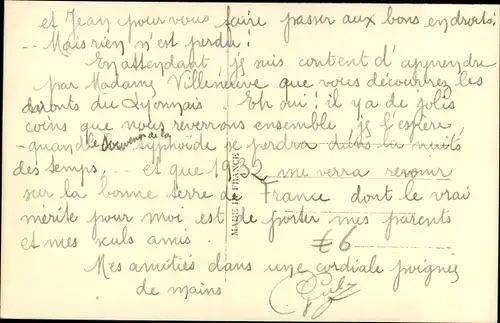 et Jean pour vous faire passer aux bons endroits;
.. Mais rien n'est perdu!
En attendant, je suis content d'apprendre
par Madame Villeneuve que vous découvrez les
monts du Lyonnais - Eh oui! il y a de jolis
coins que nous reverrons ensemble, je l'espère,
quand le souvenir de la typhoïde se perdra dans la nuit
des temps, ... et que 1932 me verra revenir
sur la bonne terre de France dont le vrai
mérite pour moi est de porter mes parents
et mes seuls amis.
Mes amitiés dans une cordiale poignée
de mains
MADE IN FRANCE
€6